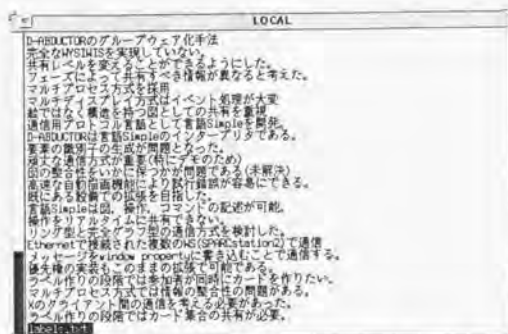 LOCAL
D-ABDUCTORのグループウェア化手法
完全なWYSIWISを実現していない。
共有レベルを変えることができるようにした。
フェーズによって共有すべき情報が異なると考えた。
マルチプロセス方式を採用
マルチディスプレイ方式はイベント処理が大変
絵ではなく構造を持つ図としての共有を重視
通信用プロトコル言語として言語Simpleを開発。
D-ABDUCTORは言語Simpleのインタープリタである。
要素の識別子の生成が問題となった。
頑丈な通信方式が重要(特にデモのため)
図の整合性をいかに保つかが問題である(未解決)
高速な自動描画機能により試行錯誤が容易にできる。
既にある設備での拡張を目指した。
言語Simpleは図、操作、コマンドの記述が可能。
操作をリアルタイムに共有できない。
リング型と完全グラフ型の通信方式を検討した。
Ethernetで接続された複数のWS(SPARCstation2)で通信
メッセージをwindow propertyに書き込むことで通信する。
優先権の実装もこのままの拡張で可能である。
ラベル作りの段階では参加者が同時にカードを作りたい。
マルチプロセス方式では情報の整合性の問題がある。
Xのクライアント間の通信を考える必要があった。
ラベル作りの段階ではカード集合の共有が必要。
labels.txt